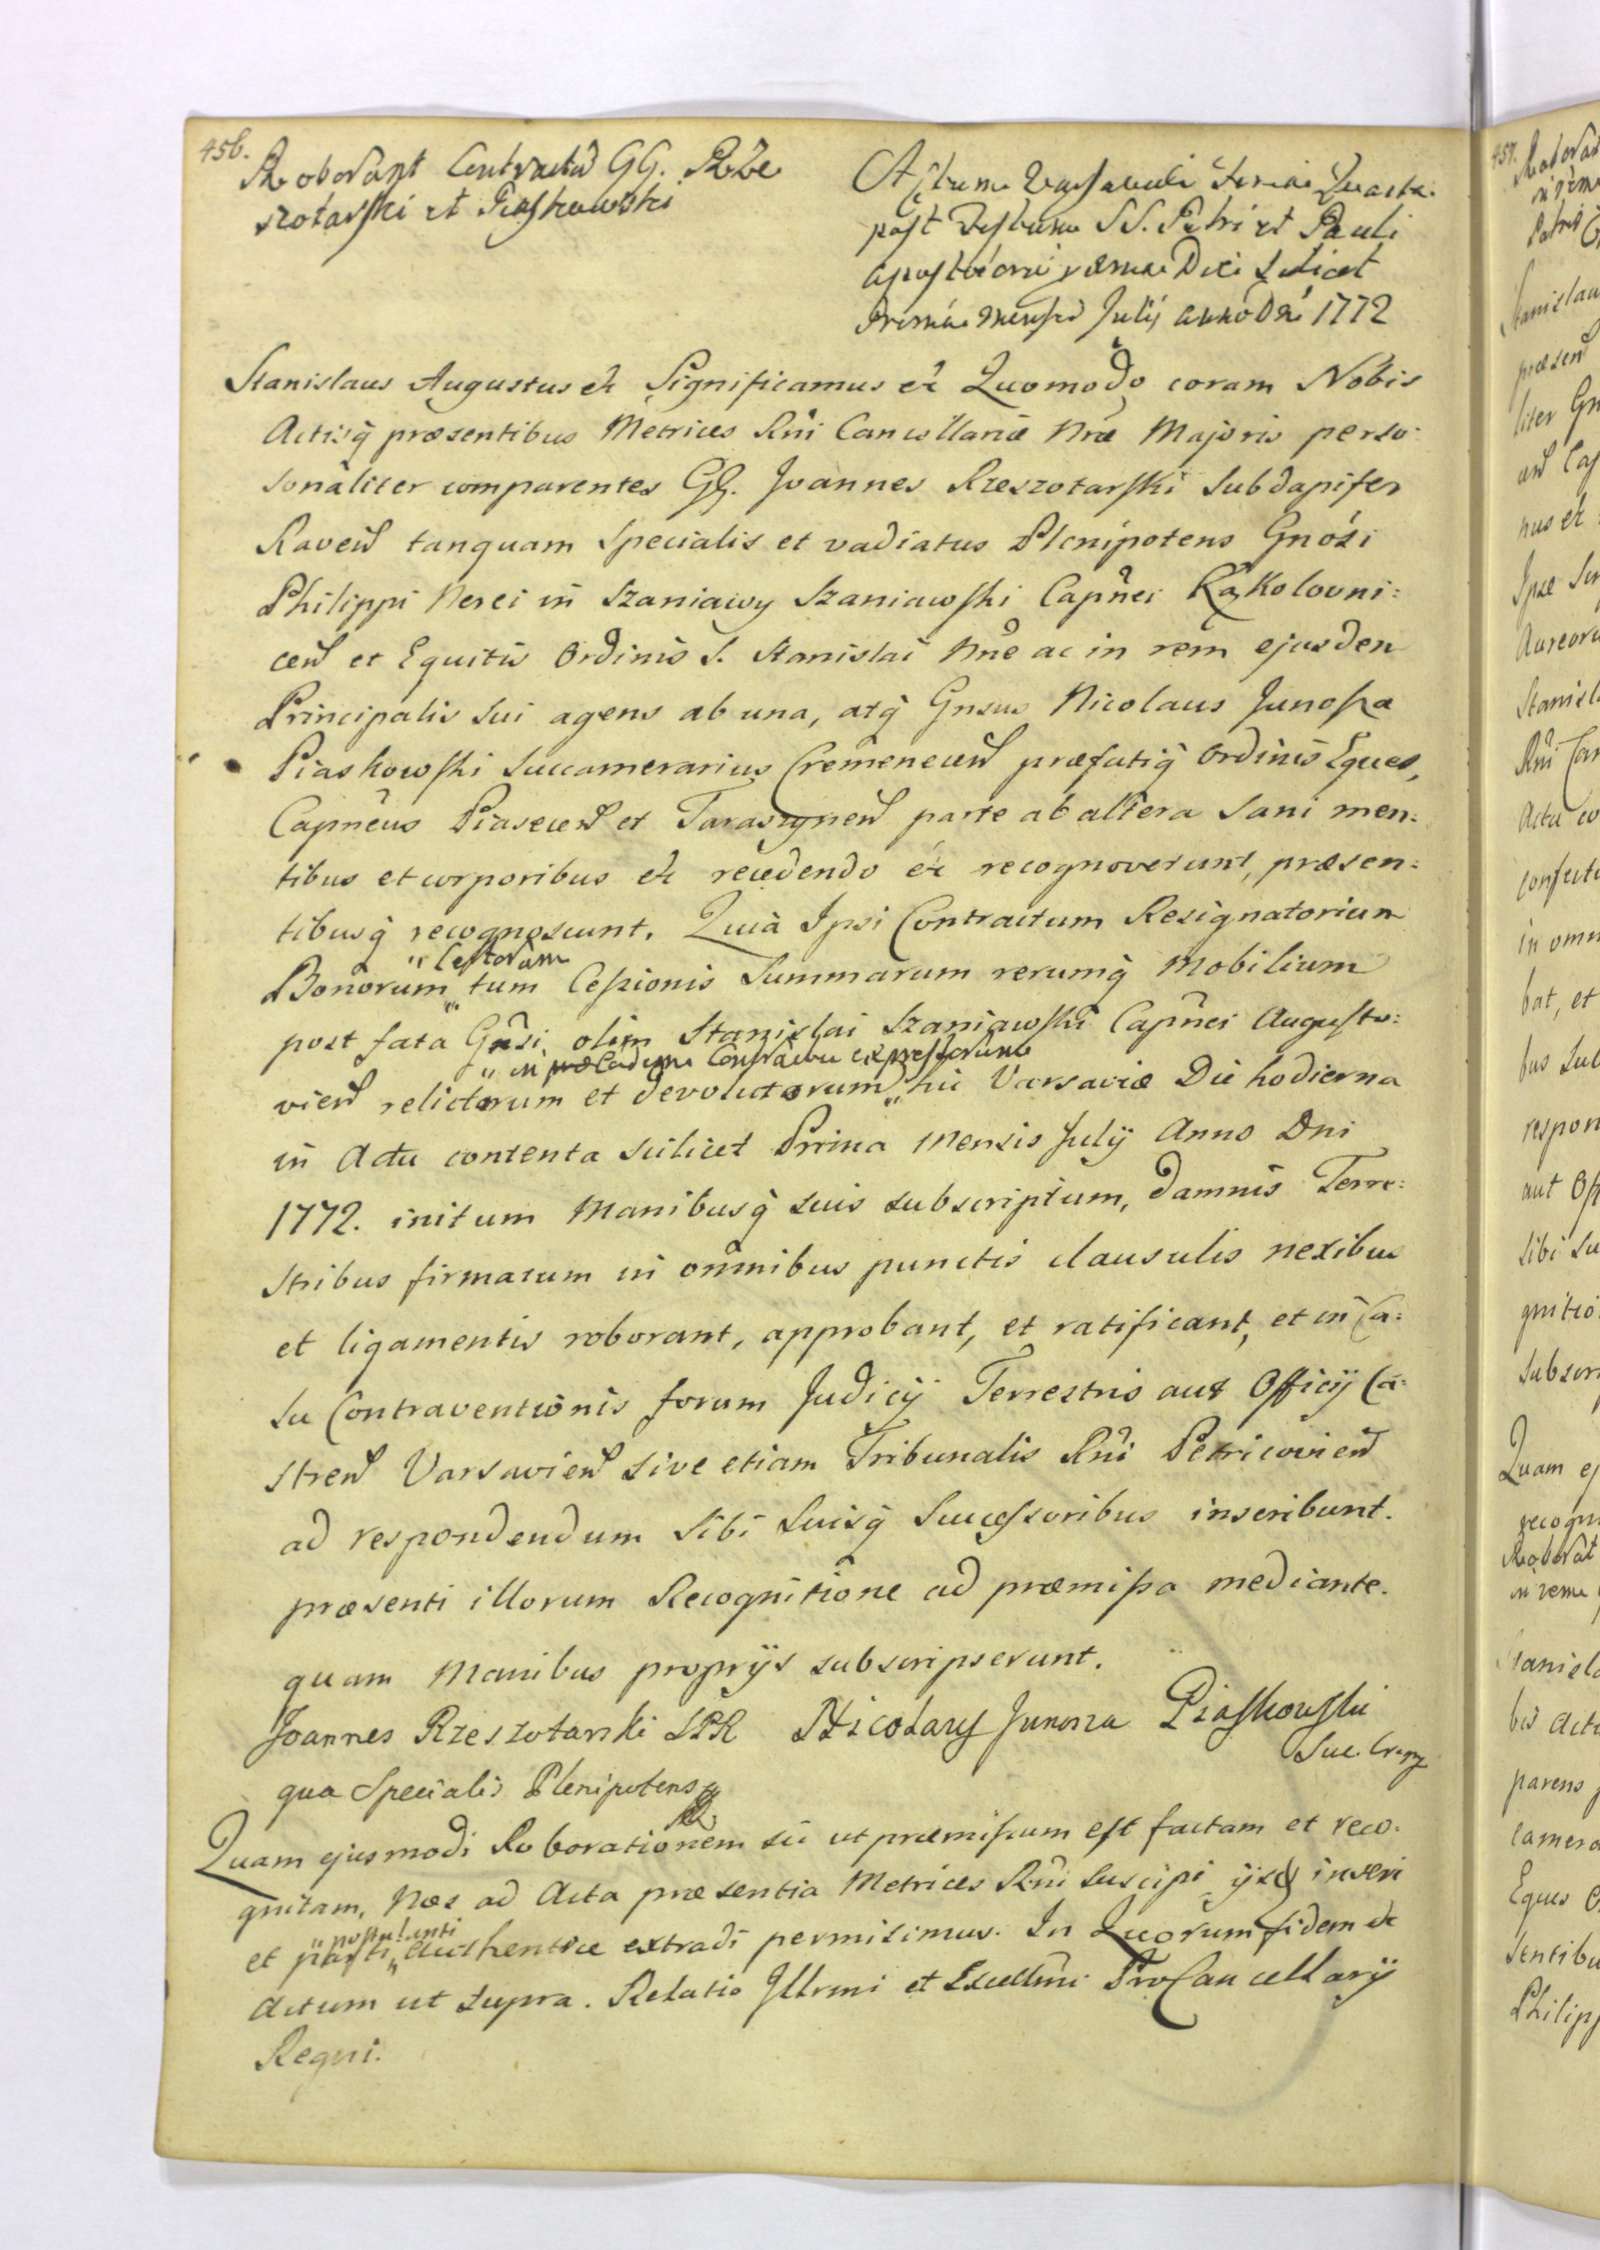 456.
Roborant Contractu GG. Rze
szotarski et Piaskowski
Actum Varsaviæ Feria Quarta
post Festum SS. Petri et Pauli
Apostolorū Die scilicet
Prima Mensis Julij Anno Dni 1772
Stanislaus Augustus &c Significamus &c Quomodo coram Nobis
Actisq̃ præsentibus Metrices Rni Cancellariæ Nræ Majoris perso:
sonaliter comparentes GG. Joannes Rzeszotarski Subdapifer
Raven tanquam Specialis et vadiatus Plenipotens Gnosi
Philippi Nerei in Szaniawy Szaniawski Capnei Kąkolovni:
cen et Equitis Ordinis S. Stanislai Nne ac in rem ejusdem
Principalis sui agens ab una, atq̃ Gnsus Nicolaus Junosza
Piaskowski Succamerarius Cremenecen præfatiq̃ Ordinis Eques,
Capneus Piasecen et Taraszynen parte ab altera Sani men:
tibus et corporibus &c recedendo &c recognoverunt, præsen:
tibusq̃ recognoscunt. Quia Ipsi Contractum Resignatorium
" Certorum
Bonorum " tum Cessionis Summarum rerumq̃ Mobilium
post fata Gnsi olim Stanislai Szaniawski Capnei Augusto:
" in eodem Contractu expressorum
vien relictorum et devolutorum " hic Varsaviæ Die hodierna
in Actu contenta scilicet Prima Mensis Julij Anno Dni
1772. initum Manibusq̃ suis subscriptum, damnis Terre:
stribus firmatum in omnibus punctis clausulis nexibus
et ligamentis roborant, approbant, et ratificant, et in Ca:
su Contraventionis forum Judicij Terrestris aut Officij Ca:
stren Varsavien sive etiam Tribunalis Rni Petricovien
ad respondendum Sibi Suisq̃ Successoribus inscribunt.
præsenti illorum Recognitione ad præmissa mediante.
quam Manibus proprijs subscripserunt.
Joannes Rzeszotarski SPR Nicolaus Junosza Piaskowski
Suc. Crem
qua Specialis Plenipotens
Quam ejusmodi Roborationem sic ut præmissum est factam et reco:
gnitam, Nos ad Acta præsentia Metrices Rni suscipi ijsq̃ inseri
" postulanti
et parti " authentice extradi permisimus. In Quorum fidem &c
Actum ut supra. Relatio Illrmi et Excellmi ProCancellarij
Regni.